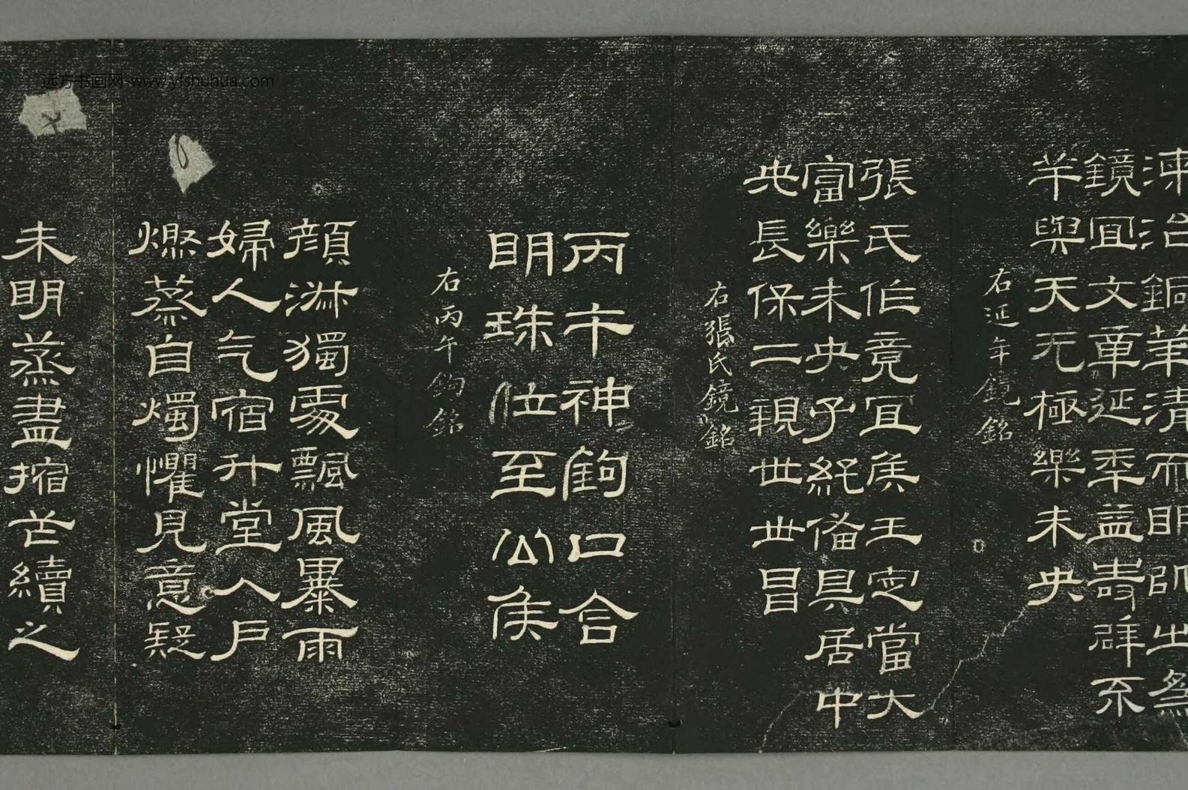 湅治銅華清而明以之為
鏡宜文章延年益壽辟不
羊與天无極樂未央
右延年鏡銘
張氏作竟宜侯王家當大
富樂未央子孫備具居中
央長保二親世世昌
右張氏鏡銘
丙午神鉤口含
明珠位至公侯
右丙午鉤銘
顏淋獨處飄風暴雨
婦人乞宿升堂入戶
燃蒸自燭懼見意疑
未明蒸盡摍苫續之
远方书画网:www.yfshuhua.com